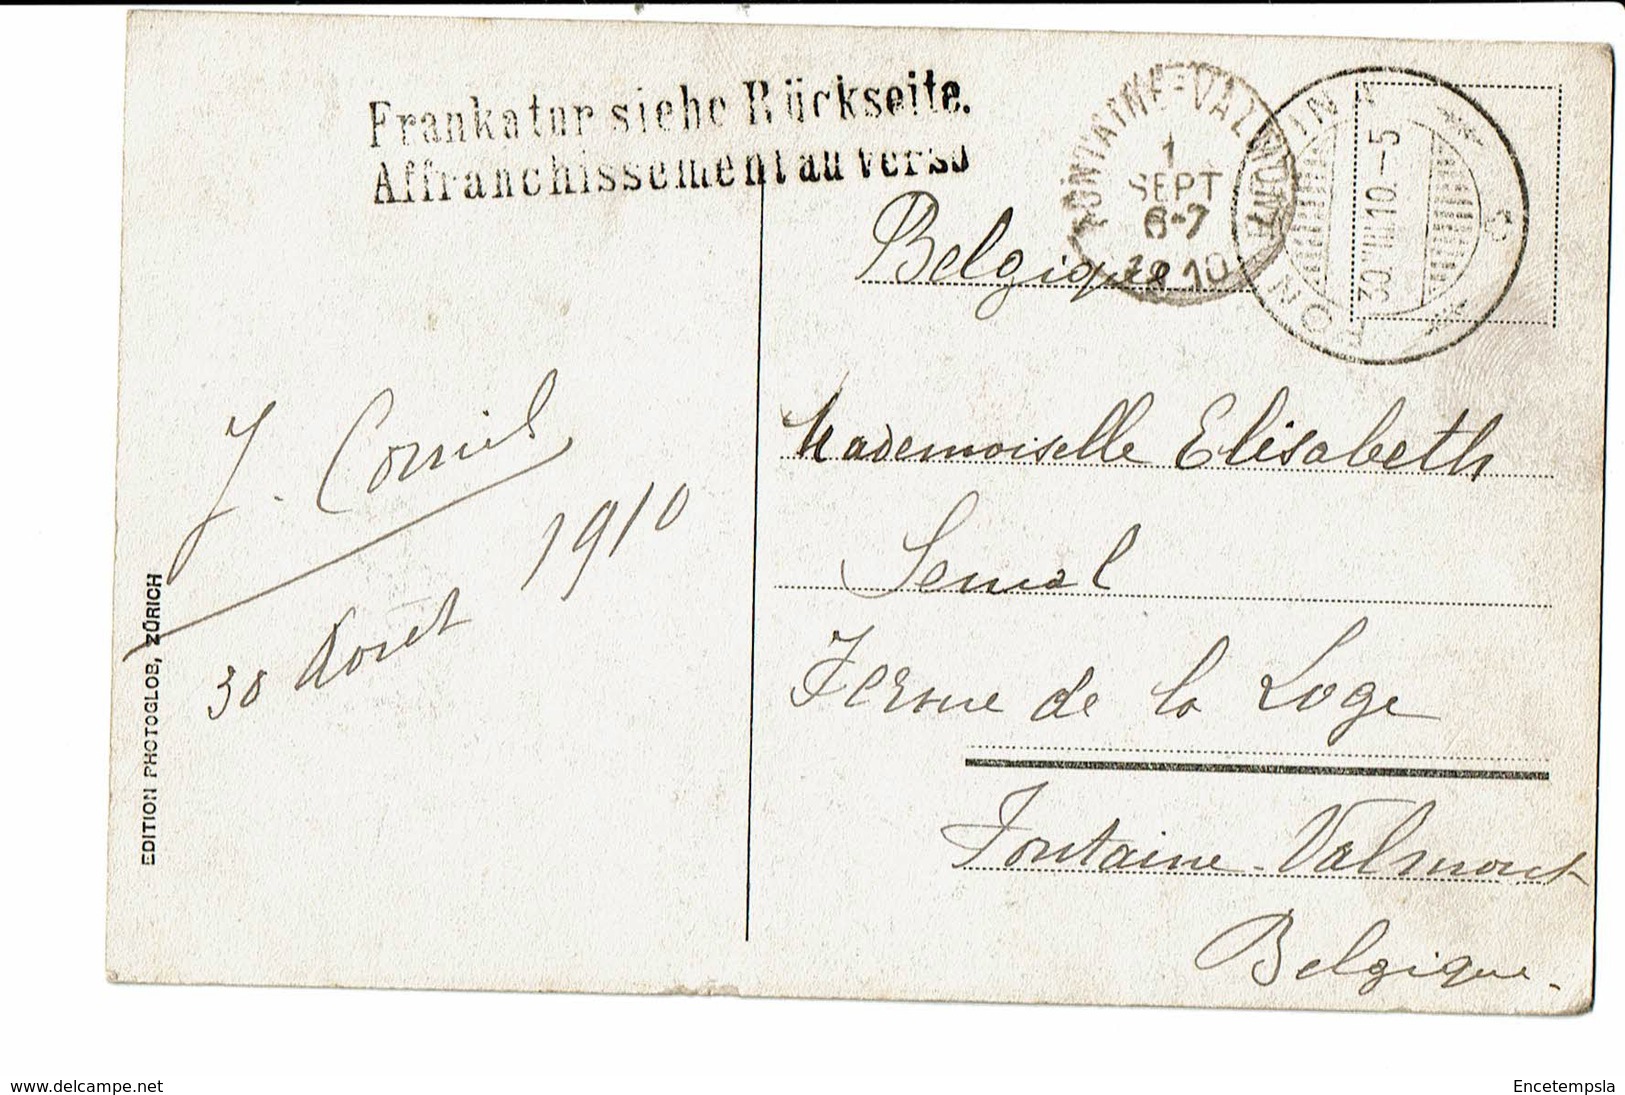 Frankatur siehe Rückseite.
Affranchissement au verso
FONTAINE-VALMONT
1
SEPT
6-7
1910
30.VIII.10.-5
Belgique
J. Cornil
30 Août 1910
Mademoiselle Elisabeth
Semal
Ferme de la Loge
Fontaine-Valmont
Belgique.
EDITION PHOTOGLOB, ZÜRICH
www.delcampe.net
Encetempsla